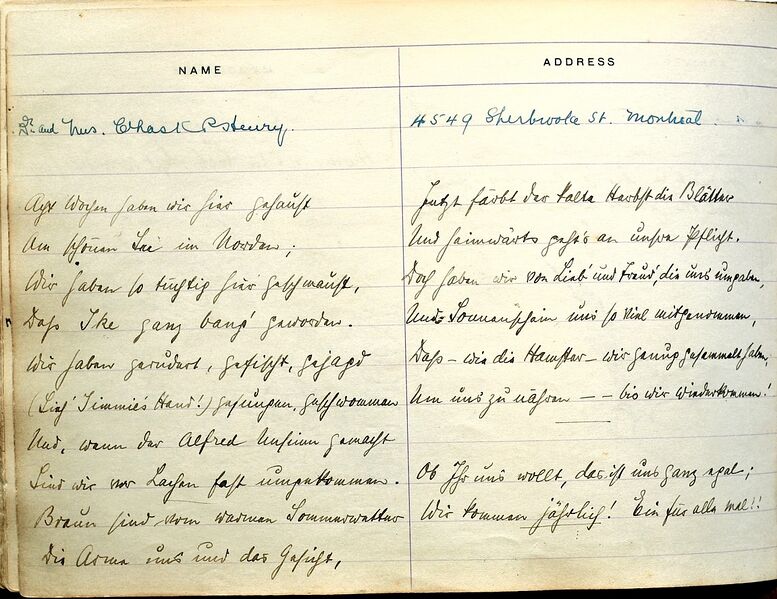 NAME
ADDRESS
Dr. and Mrs. Chas K P Henry.
4549 Sherbrooke St. Montreal.
Acht Wochen haben wir hier gehaust
Am schönen See im Norden;
Wir haben so tüchtig hier geschmaust,
Daß Ike ganz bang' geworden.
Wir haben gerudert, gefischt, gejagd
(Sieh' Jimmie's Hand!) gesungen, geschwommen
Und, wenn der Alfred Unsinn gemacht
Sind wir vor Lachen fast umgekommen.
Braun sind vom warmen Sommerwetter
Die Arme uns und das Gesicht,
Jetzt färbt der kalte Herbst die Blätter
Und heimwärts geht's an unsre Pflicht.
Doch haben wir von Lieb' und Freud', die uns umgaben,
Und Sonnenschein uns so viel mitgenommen,
Daß – wie die Hamster – wir genug gesammelt haben,
Um uns zu nähren – – bis wir wiederkommen!
Ob Ihr uns wollt, das ist uns ganz egal;
Wir kommen jährlich! Ein für alle mal!!